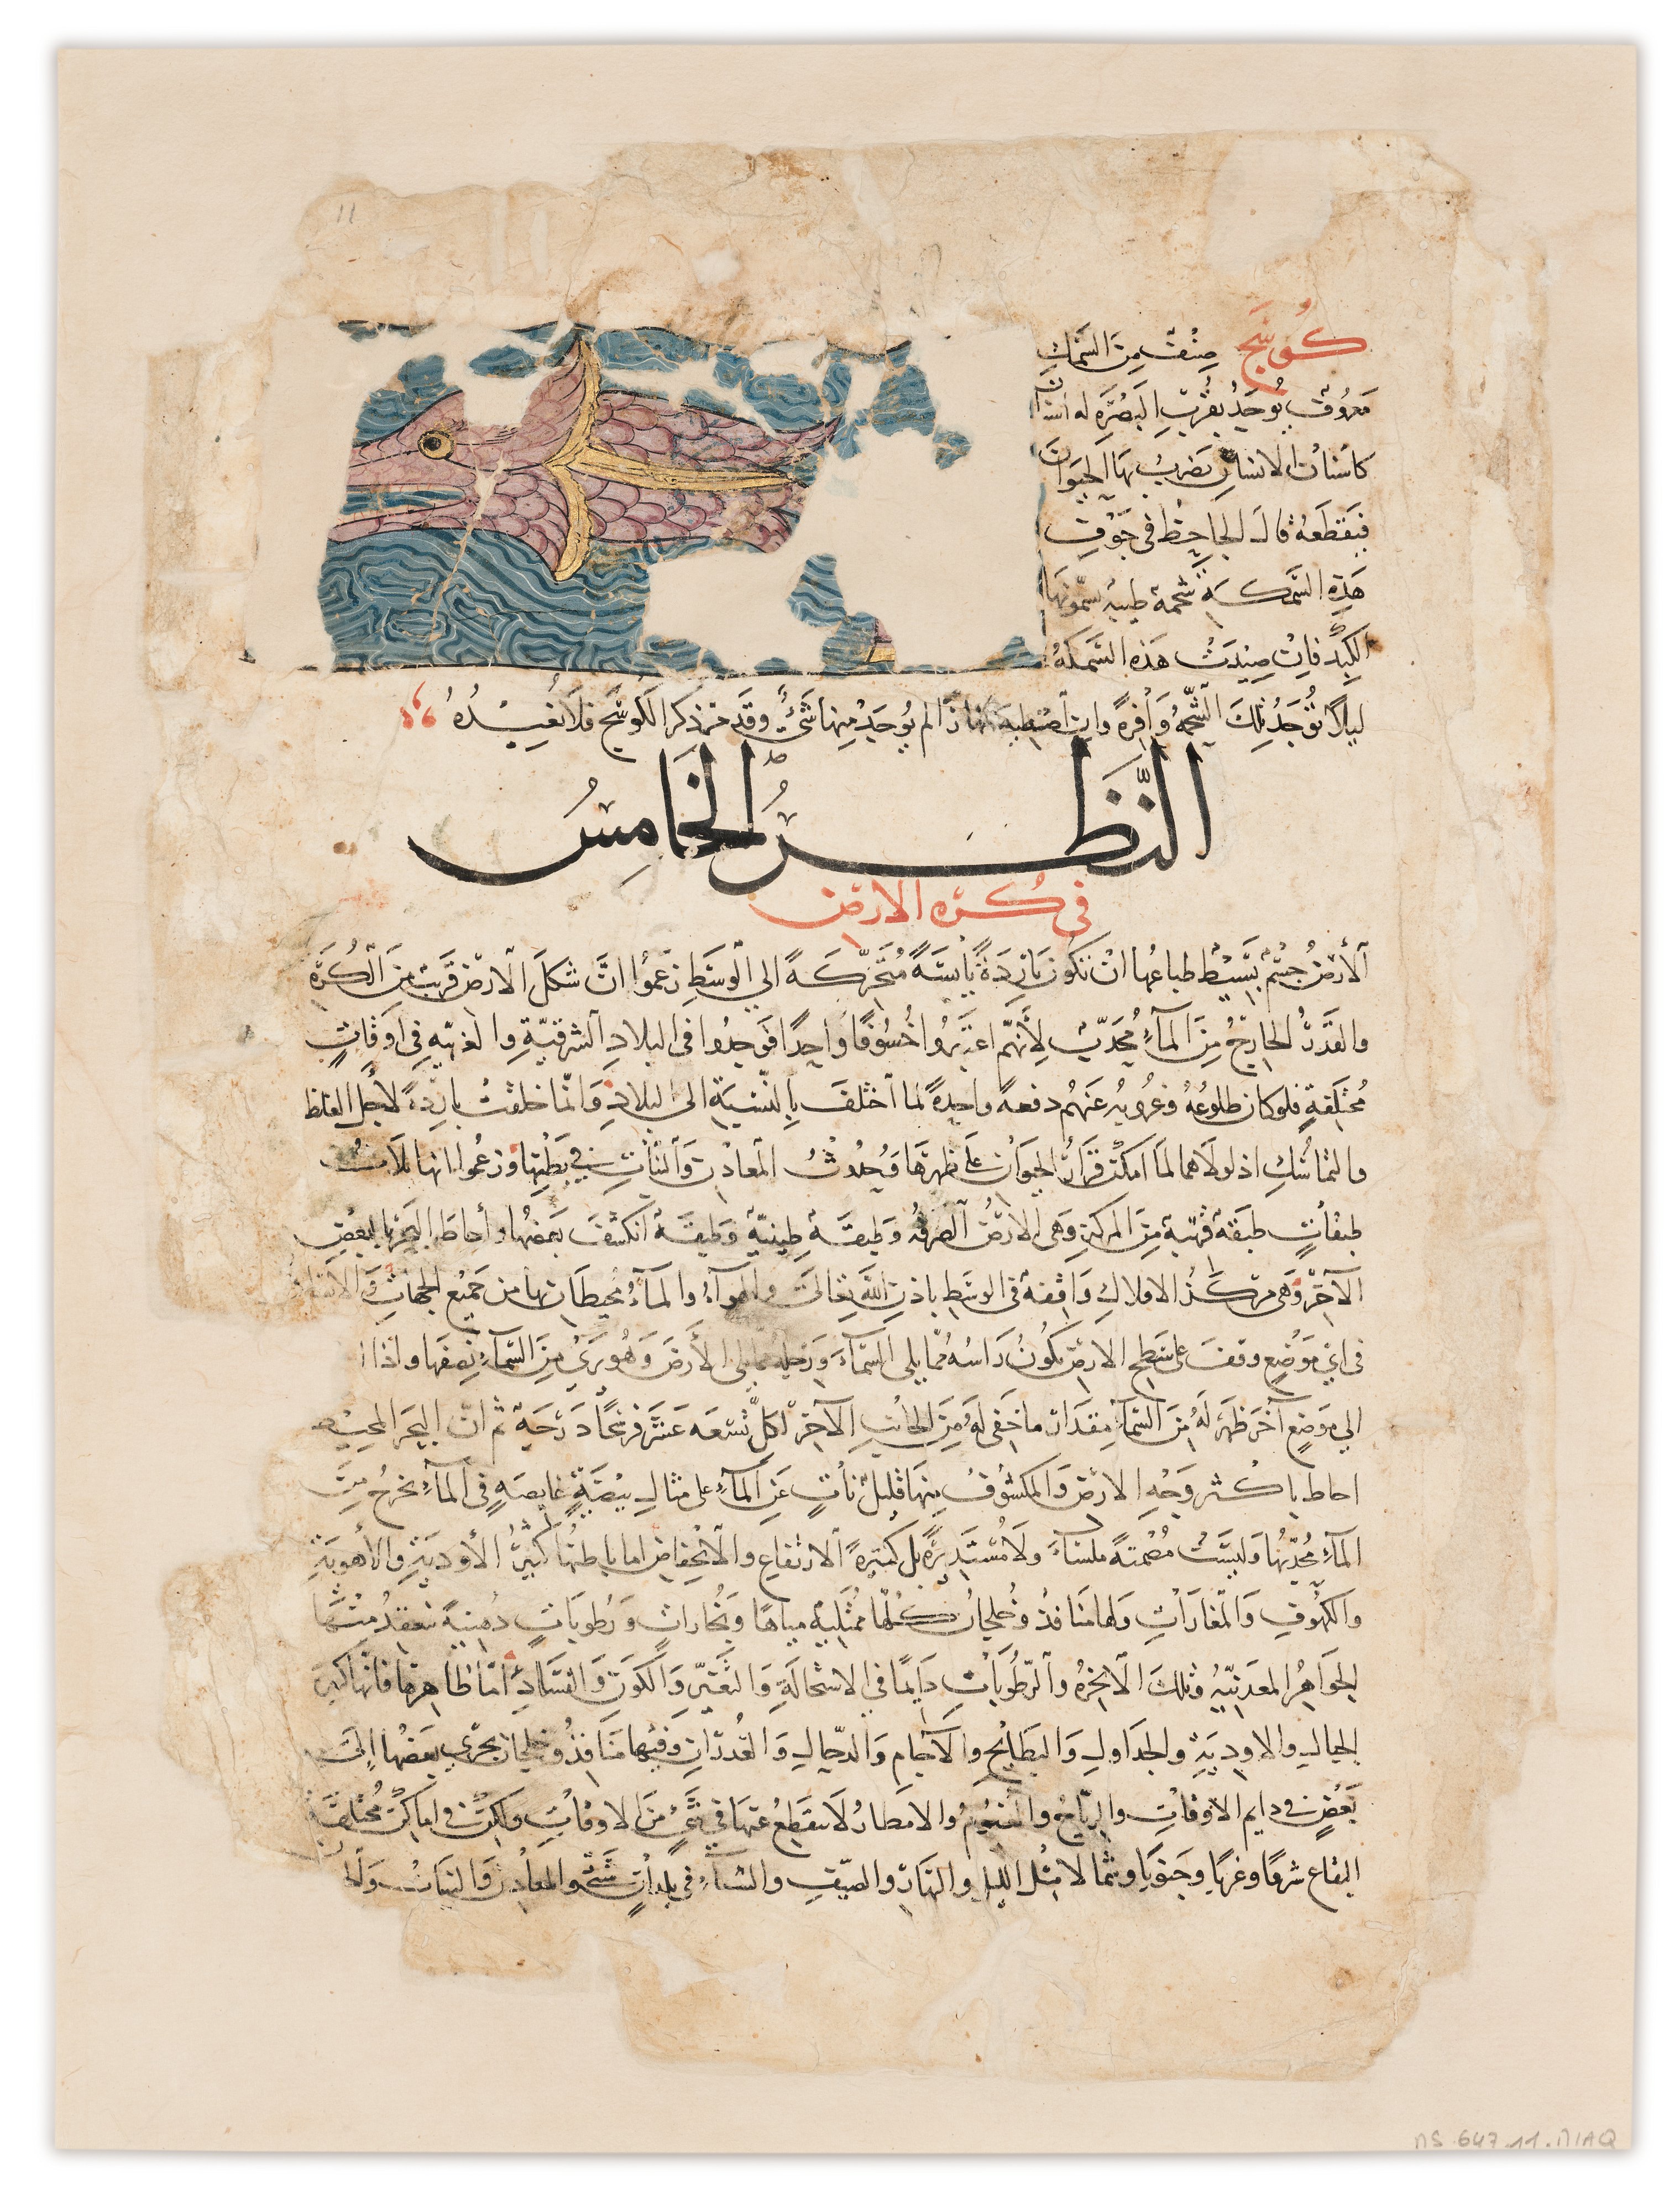 ١١
كوسج صنف من السمك
معروف يوجد بقرب البصرة له اسنان
كاسنان الانسان يضرب بها الحيوان
فيقطعه قال الجاحظ في جوف
هذه السمكة شحمة طيبة يسمونها
الكبد فان صيدت هذه السمكة
ليلا توجد تلك الشحمه وافرة وان نهارا لم يوجد منها شئ وقد مر ذكر الكوسج فلا نعيده
النظر الخامس
في كره الارض
الأرض جسم بسيط طباعها ان تكون باردة يابسة متحركة الي الوسط زعموا ان شكل الارض قريب من الكرة
والقدر الخارج من المآء محدب لأنهم اعتبروا خسوفا واحدا فوجدوا في البلاد الشرقية والغربيه في اوقات
مختلفة فلو كان طلوعه وغروبه عنهم دفعة واحدة لما اختلف بالنسبة الى البلاد وانما خلقت باردة لأجل الغلظ
والتماسك اذ لولاهما لما امكن قرار الحيوان على ظهرها وحدوث المعادن والنبات في بطنها وزعموا انها ثلاث
طبقات طبقة قريبة من المركز وهى الارض الصرفه وطبقة طينية وطبقة انكشف بعضها واحاط البحر بالبعض
الآخر وهى مركز الافلاك واقفة في الوسط باذن الله تعالى والهوآء والمآء محيطان بها من جميع الجهات والانسان
في اي موضع وقف على سطح الارض يكون راسه مما يلى السمآء ورجله مما يلى الأرض وهو يرى من السمآء نصفها واذا
الي موضع آخر ظهر له من السمآء مقدار ما خفى له من الجانب الآخر لكل تسعه عشر فرسخا درجة ثم ان البحر المحيط
احاط باكثر وجه الارض والمكشوف منها قليل نات عن المآء على مثال بيضة غايصه في المآء يخرج من
المآء محدبها وليست مصمتة ملساء ولا مستديرة بل كثيرة الارتفاع والانخفاض اما باطنها كثير الأودية والأهوية
والكهوف والمغارات ولها منافذ وخلجان كلها ممتلية مياها وبخارات ورطوبات دهنية تنعقد منها
الجواهر المعدنية وتلك الابخره والرطوبات دايما في الاستحالة والتغير والكون والفساد اما ظاهرها فانها كثير
الجبال والاودية والجداول والبطايح والآجام والدحال والغدران وفيها منافذ وخلجان يجري بعضها الى
بعض في دايم الاوقات والرياح والغيوم والامطار لا ينقطع عنها في شئ من الاوقات ولكن في اماكن مختلفة
البقاع شرقا وغربا وجنوبا وشمالا مثل الليل والنهار والصيف والشتآء في بلدان شتى والمعادن والنبات
MS.647.11.MIAQ